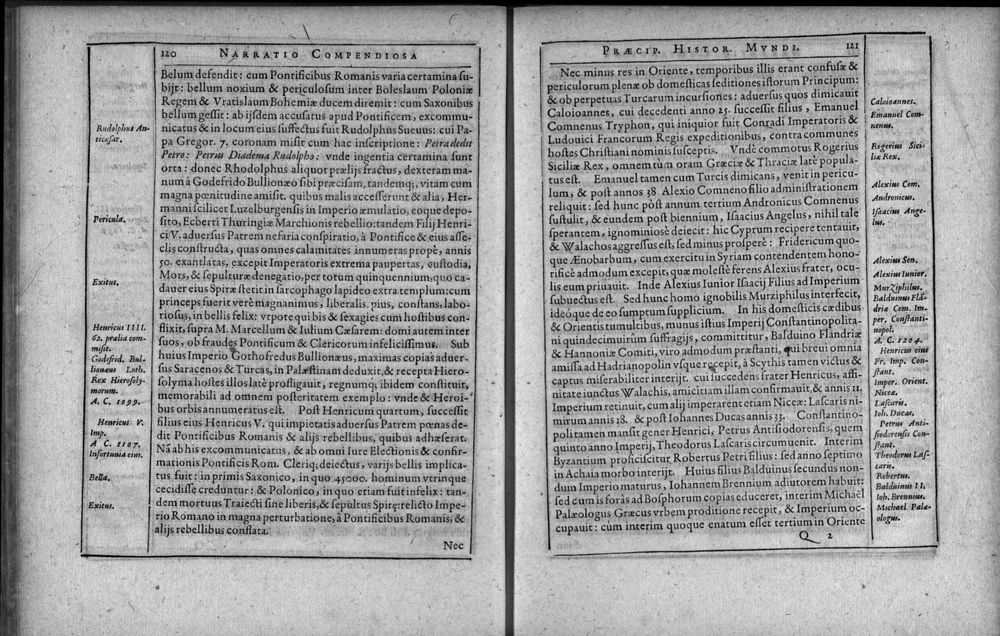 120 NARRATIO COMPENDIOSA
Belum defendit: cum Pontificibus Romanis varia certamina su-
bijt: bellum noxium & periculosum inter Boleslaum Poloniæ
Regem & Vratislaum Bohemiæ ducem diremit: cum Saxonibus
bellum gessit: ab ijsdem accusatus apud Pontificem, excommu-
nicatus & in locum eius suffectus fuit Rudolphus Sueuus: cui Pa-
pa Gregor. 7. coronam misit cum hac inscriptione: Petra dedit
Petro: Petrus Diadema Rudolpho: vnde ingentia certamina sunt
orta: donec Rhodolphus aliquot prælijs fractus, dexteram ma-
num à Godefrido Bullionæo sibi præcisam, tandemq; vitam cum
magna pœnitudine amisit. quibus malis accesserunt & alia, Her-
manni scilicet Luzelburgensis in Imperio æmulatio, eoque depo-
sito, Ecberti Thuringiæ Marchionis rebellio: tandem Filij Henri-
ci V. aduersus Patrem nefaria conspiratio, à Pontifice & eius asse-
clis constructa, quas omnes calamitates innumeras propè, annis
50. exantlatas, excepit Imperatoris extrema paupertas, custodia,
Mors, & sepulturæ denegatio, per totum quinquennium, quo ca-
dauer eius Spiræ stetit in sarcophago lapideo extra templum: cum
princeps fuerit verè magnanimus, liberalis, pius, constans, labo-
riosus, in bellis felix: vtpote qui bis & sexagies cum hostibus con-
flixit, supra M. Marcellum & Iulium Cæsarem: domi autem inter
suos, ob fraudes Pontificum & Clericorum infelicissimus. Sub
huius Imperio Gothofredus Bullionæus, maximas copias aduer-
sus Saracenos & Turcas, in Palæstinam deduxit, & recepta Hiero-
solyma hostes illos latè profligauit, regnumq; ibidem constituit,
memorabili ad omnem posteritatem exemplo: vnde & Heroi-
bus orbis annumeratus est. Post Henricum quartum, successit
filius eius Henricus V. qui impietatis aduersus Patrem pœnas de-
dit Pontificibus Romanis & alijs rebellibus, quibus adhæserat.
Nã ab his excommunicatus, & ab omni Iure Electionis & confir-
mationis Pontificis Rom. Cleriq; deiectus, varijs bellis implica-
tus fuit: in primis Saxonico, in quo 45000. hominum vtrinque
cecidisse creduntur: & Polonico, in quo etiam fuit infelix: tan-
dem mortuus Traiecti sine liberis, & sepultus Spiræ: relicto Impe-
rio Romano in magna perturbatione, à Pontificibus Romanis, &
alijs rebellibus conflata.
Nec
Rudolphus An-
ticæsar.
Pericula.
Exitus.
Henricus IIII.
62. prælia com-
misit.
Godefrid. Bul-
lionæus Loth.
Rex Hierosoly-
morum.
A. C. 1099.
Henricus V.
Imp.
A. C. 1107.
Infortunia eius.
Bella.
Exitus.
PRÆCIP. HISTOR. MVNDI. 121
Nec minus res in Oriente, temporibus illis erant confusæ &
periculorum plenæ ob domesticas seditiones istorum Principum:
& ob perpetuas Turcarum incursiones: aduersus quos dimicauit
Caloioannes, cui decedenti anno 25. successit filius, Emanuel
Comnenus Tryphon, qui iniquior fuit Conradi Imperatoris &
Ludouici Francorum Regis expeditionibus, contra communes
hostes Christiani nominis susceptis. Vndè commotus Rogerius
Siciliæ Rex, omnem tum oram Græciæ & Thraciæ latè popula-
tus est. Emanuel tamen cum Turcis dimicans, venit in pericu-
lum, & post annos 38 Alexio Comneno filio administrationem
reliquit: sed hunc pòst annum tertium Andronicus Comnenus
sustulit, & eundem post biennium, Isaacius Angelus, nihil tale
sperantem, ignominiosè deiecit: hic Cyprum recipere tentauit,
& Walachos aggressus est, sed minus prosperè: Fridericum quo-
que Ænobarbum, cum exercitu in Syriam contendentem hono-
rificè admodum excepit, quæ molestè ferens Alexius frater, ocu-
lis eum priuauit. Inde Alexius Iunior Isaacij Filius ad Imperium
subuectus est. Sed hunc homo ignobilis Murziphilus interfecit,
ideóque de eo sumptum supplicium. In his domesticis cædibus
& Orientis tumultibus, munus istius Imperij Constantinopolita-
ni quindecimuirûm suffragijs, committitur, Balduino Flandriæ
& Hannoniæ Comiti, viro admodum præstanti, qui breui omnia
amissa ad Hadrianopolin vsque recepit, à Scythis tamen victus &
captus miserabiliter interijt. cui succedens frater Henricus, affi-
nitate iunctus Walachis, amicitiam illam confirmauit, & annis 11.
Imperium retinuit, cum alij imperarent etiam Niceæ: Lascaris ni-
mirum annis 18. & post Iohannes Ducas annis 33. Constantino-
poli tamen mansit gener Henrici, Petrus Antisiodorensis, quem
quinto anno Imperij, Theodorus Lascaris circumuenit. Interim
Byzantium proficiscitur Robertus Petri filius: sed anno septimo
in Achaia morbo interijt. Huius filius Balduinus secundus non-
dum Imperio maturus, Iohannem Brennium adiutorem habuit:
sed cum is foràs ad Bosphorum copias educeret, interim Michaël
Palæologus Græcus vrbem proditione recepit, & Imperium oc-
cupauit: cum interim quoque enatum esset tertium in Oriente
Q 2
Caloioannes.
Emanuel Com-
nenus.
Rogerius Sici-
liæ Rex.
Alexius Com.
Andronicus.
Isaacius Ange-
lus.
Alexius Sen.
Alexius Iunior.
Murziphilus.
Balduinus Flã-
driæ Com. Im-
per. Constanti-
nopol.
A. C. 1204.
Henricus eius
Fr. Imp. Con-
stant.
Imper. Orient.
Niceæ.
Lascaris.
Ioh. Ducas.
Petrus Anti-
siodorensis Con-
stant.
Theodorus Las-
caris.
Robertus.
Balduinus II.
Ioh. Brennius.
Michael Palæ-
ologus.